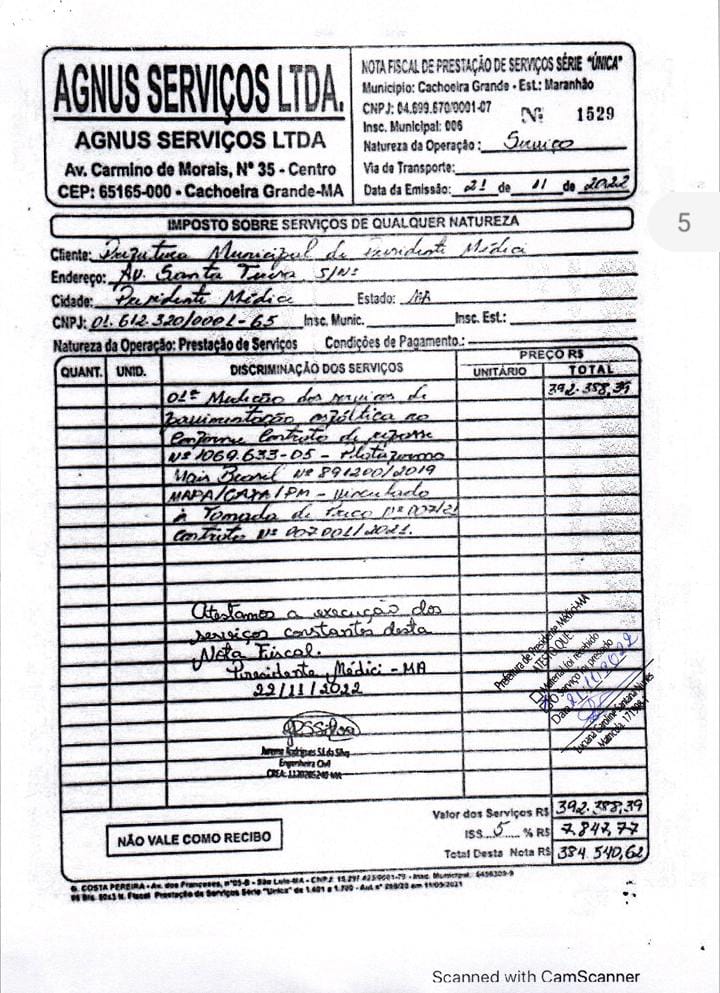 AGNUS SERVIÇOS LTDA.
AGNUS SERVIÇOS LTDA
Av. Carmino de Morais, Nº 35 - Centro
CEP: 65165-000 - Cachoeira Grande-MA
NOTA FISCAL DE PRESTAÇÃO DE SERVIÇOS SÉRIE "ÚNICA"
Município: Cachoeira Grande - Est.: Maranhão
CNPJ: 04.699.670/0001-07
Insc. Municipal: 006
Nº 1529
Natureza da Operação: Serviço
Via de Transporte:
Data da Emissão: 21 de 11 de 2022
5
IMPOSTO SOBRE SERVIÇOS DE QUALQUER NATUREZA
Cliente: Prefeitura Municipal de Presidente Médici
Endereço: Av. Santa Teresa S/Nº
Cidade: Presidente Médici Estado: MA
CNPJ: 01.612.320/0001-65 Insc. Munic. Insc. Est.:
Natureza da Operação: Prestação de Serviços Condições de Pagamento.:
QUANT. UNID. DISCRIMINAÇÃO DOS SERVIÇOS PREÇO R$
UNITÁRIO TOTAL
01ª Medição dos serviços de 392.388,39
pavimentação asfáltica no
Conforme Contrato de repasse
Nº 1069.633-05 - Plataforma
Mais Brasil Nº 891200/2019
MAPA/CAIXA/PM - vinculado
à Tomada de Preço Nº 007/21
Contrato Nº 007001/2021.
Atestamos a execução dos
serviços constantes desta
Nota Fiscal.
Presidente Médici - MA
22/11/2022
Prefeitura de Presidente Médici-MA
ATESTO QUE
Material foi recebido
O Serviço foi prestado
Data 21/11/2022
Matrícula
Rodrigues S. da Silva
Engenheira Civil
Valor dos Serviços R$ 392.388,39
ISS 5 % R$ 7.847,77
Total Desta Nota R$ 384.540,62
NÃO VALE COMO RECIBO
G. COSTA PEREIRA - Av. dos Franceses, nº 05-B - São Luís-MA - CNPJ: - Insc. Municipal:
Fiscal Prestação de Serviços Série "Única" de 1.401 a 1.700 - em 11/05/2021
Scanned with CamScanner